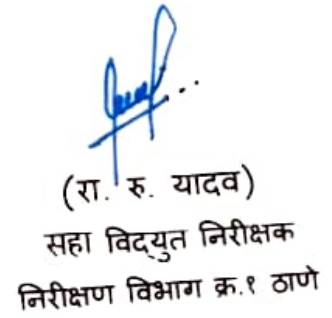 (रा. रु. यादव)
सहा विद्युत निरीक्षक
निरीक्षण विभाग क्र.१ ठाणे